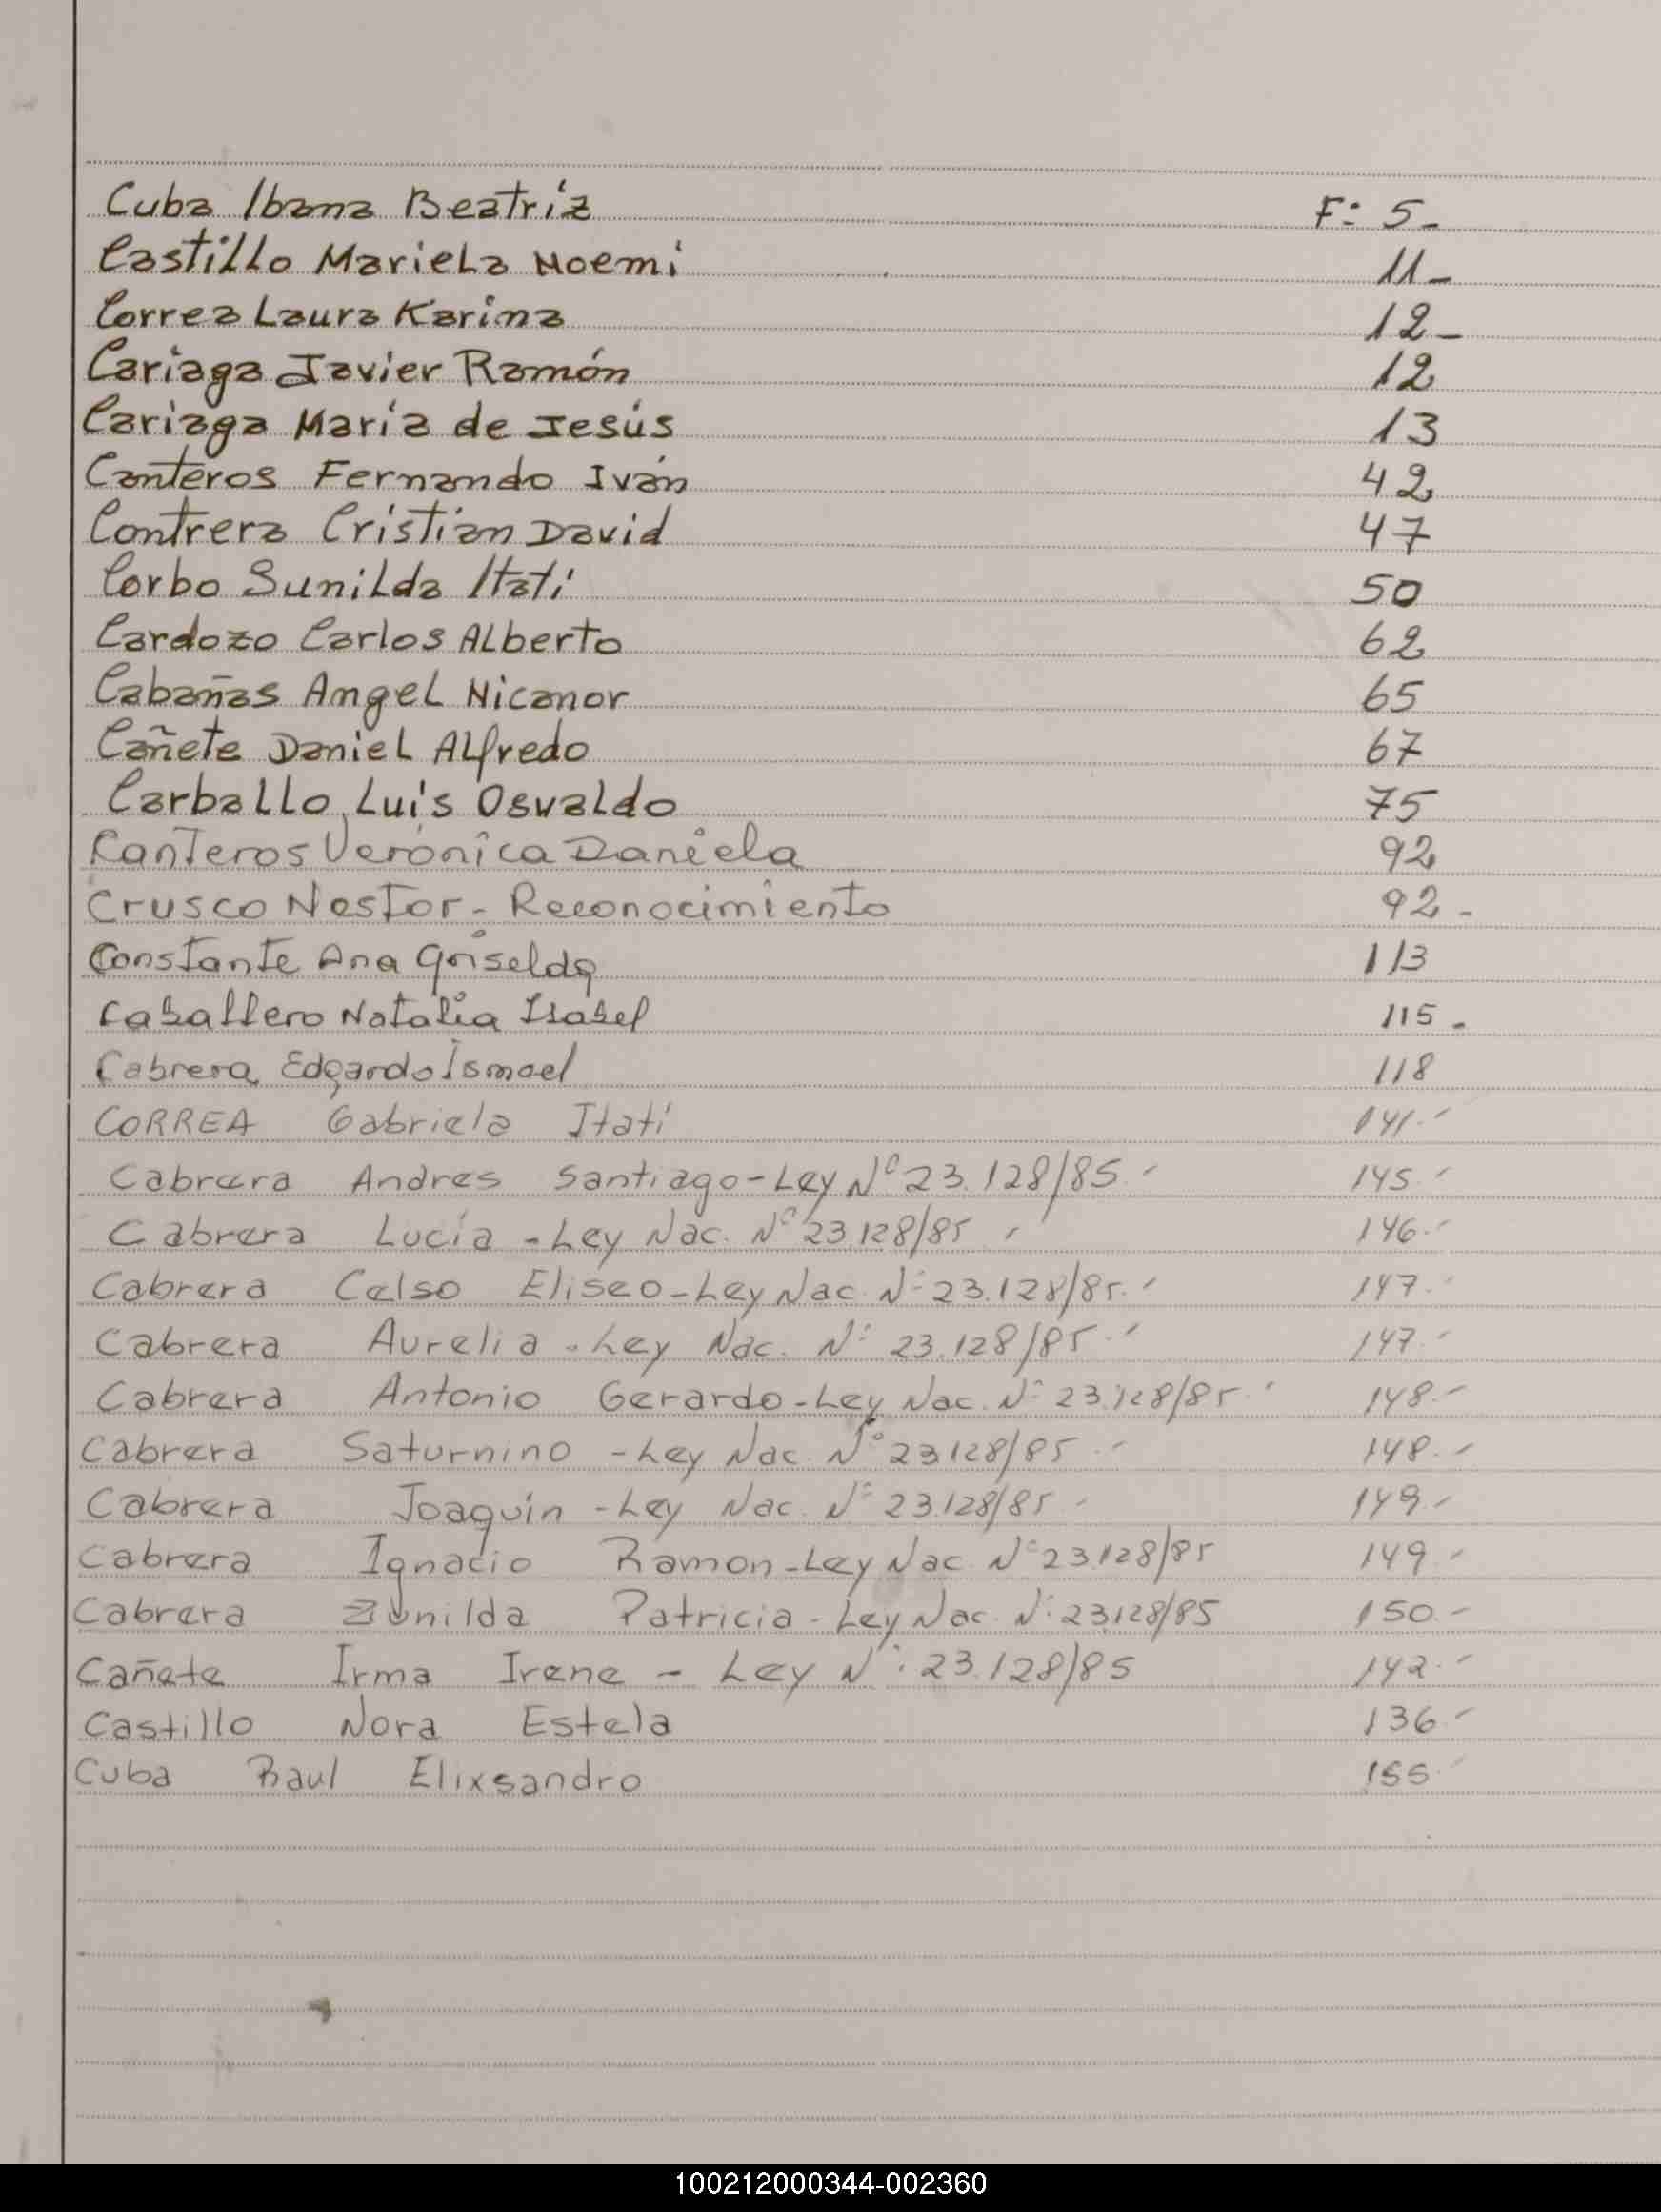 Cuba Ibana Beatriz F: 5-
Castillo Mariela Noemi 11-
Correa Laura Karina 12-
Cariaga Javier Ramón 12
Cariaga María de Jesús 13
Canteros Fernando Iván 42
Contrera Cristian David 47
Corbo Sunilda Itatí 50
Cardozo Carlos Alberto 62
Cabañas Angel Nicanor 65
Cañete Daniel Alfredo 67
Carballo Luis Osvaldo 75
Canteros Verónica Daniela 92
Crusco Nestor - Reconocimiento 92-
Constante Ana Griselda 113
Caballero Natalia Isabel 115-
Cabrera Edgardo Ismael 118
CORREA Gabriela Itatí 141.-
Cabrera Andres Santiago-Ley N° 23.128/85.- 145.-
Cabrera Lucía - Ley Nac. N° 23.128/85 - 146.-
Cabrera Celso Eliseo-Ley Nac. N° 23.128/85.- 147.-
Cabrera Aurelia - Ley Nac. N° 23.128/85.- 147.-
Cabrera Antonio Gerardo-Ley Nac. N° 23.128/85.- 148.-
Cabrera Saturnino - Ley Nac. N° 23.128/85.- 148.-
Cabrera Joaquín - Ley Nac. N° 23.128/85 - 149.-
Cabrera Ignacio Ramon-Ley Nac. N° 23.128/85 149.-
Cabrera Zunilda Patricia - Ley Nac. N° 23.128/85 150.-
Cañete Irma Irene - Ley N° 23.128/85 142.-
Castillo Nora Estela 136.-
Cuba Raul Elixsandro 155.-
100212000344-002360